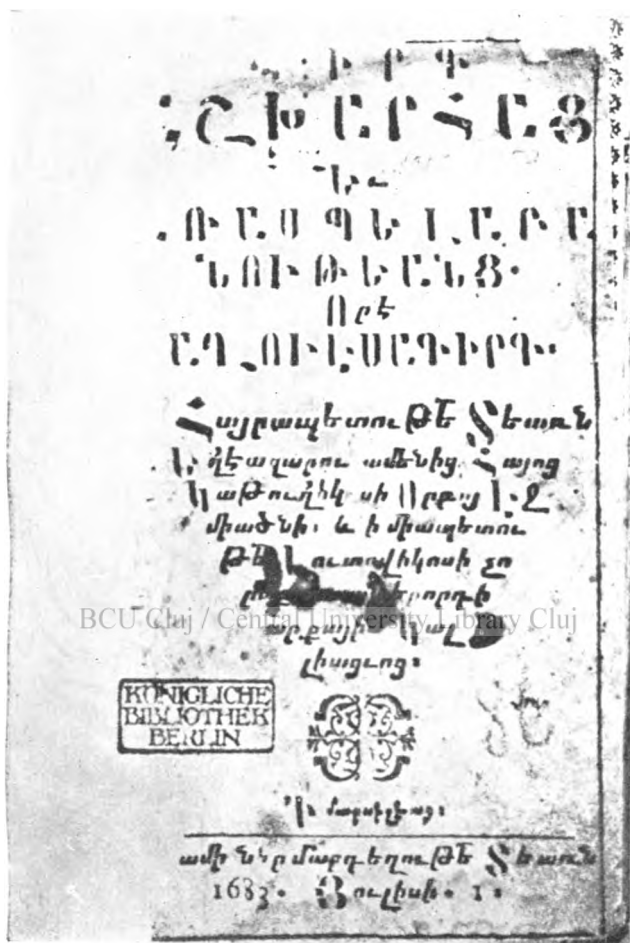 ԻՐԳ
ՇԽԱՐՀԱՑ
Եւ
ՌԱՍՊԵԼԱԲԱ
ՆՈՒԹԵԱՆՑ.
Որ է
ԱՂՈՒԷՍԱԳԻՐԳ:
Հայրապետու թե Տեառն
Եղէազարու ամենից Հայոց
Կաթուղիկոսի Սրբոյ Էջ
միածնի: և ի միապետու
թե Լուտովիկոսի չո
երորդի
արքայի Կալ
լիացւոց:
BCU Cluj / Central University Library Cluj
KÖNIGLICHE
BIBLIOTHEK
BERLIN
Ի մարսիլեայ:
ամի ներմարդեղութե Տեառն
1683. Յուլիսի. 1: